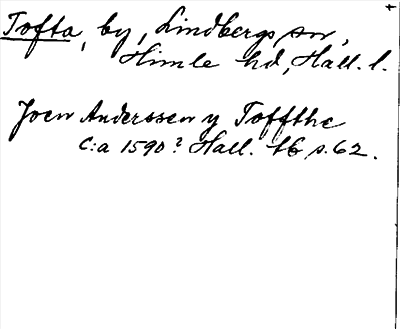 Tofta, by, Lindbergs sn,
Himle hd, Hall. l.
Joen Anderssen y Toffthe
c:a 1590? Hall. tb s. 62.